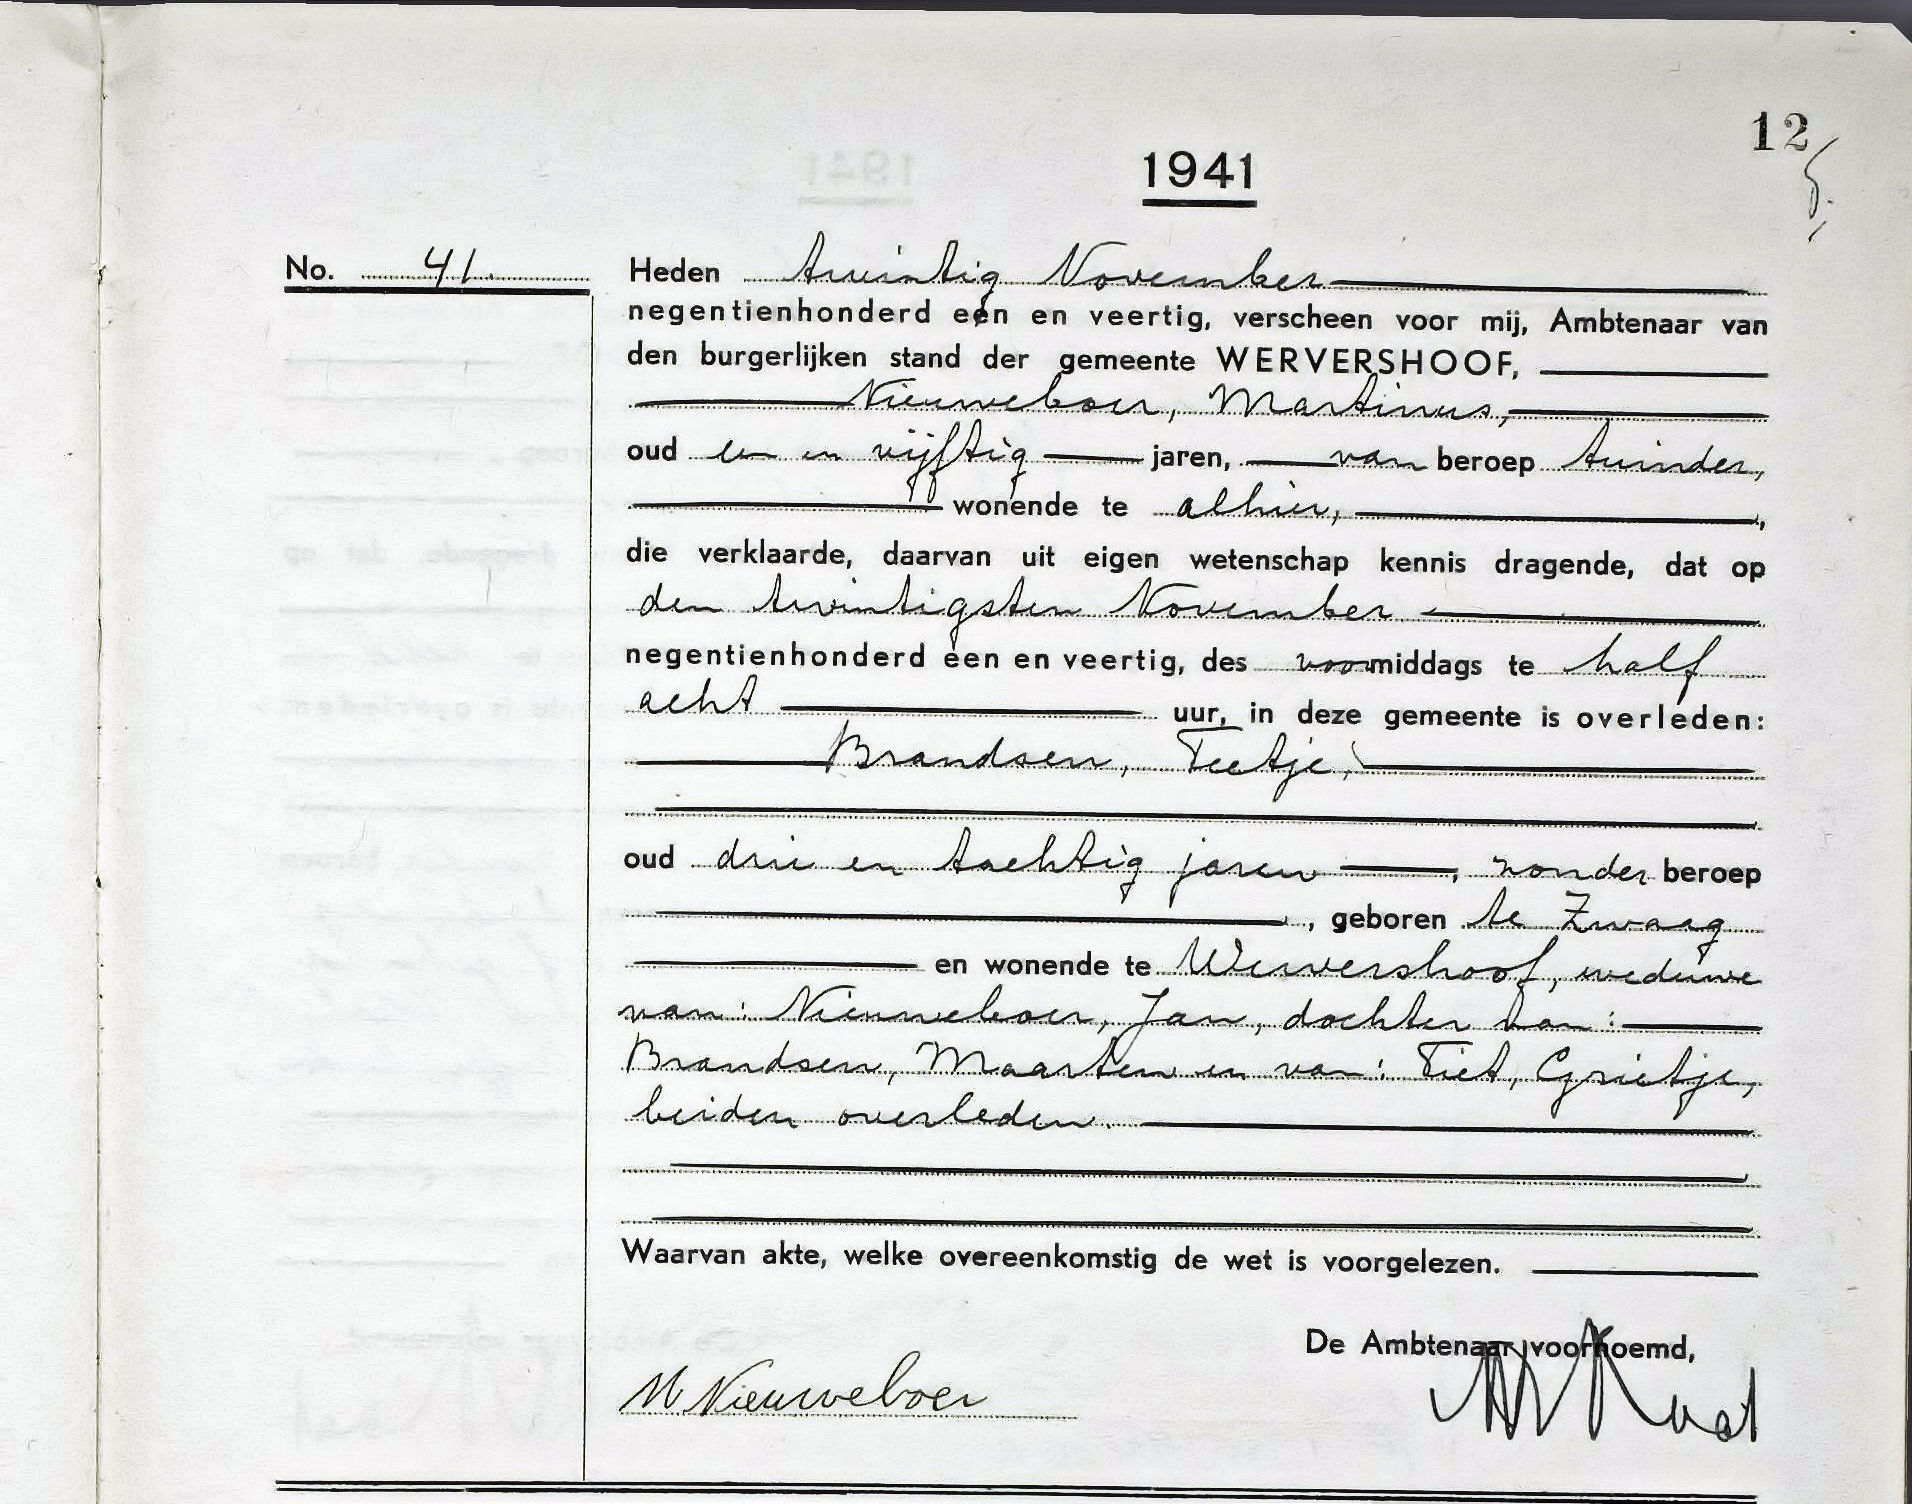 12
1941
No. 41.
Heden twintig November
negentienhonderd een en veertig, verscheen voor mij, Ambtenaar van
den burgerlijken stand der gemeente WERVERSHOOF,
Nieuweboer, Martinus,
oud een en vijftig jaren, van beroep tuinder,
wonende te alhier,
die verklaarde, daarvan uit eigen wetenschap kennis dragende, dat op
den twintigsten November
negentienhonderd een en veertig, des voormiddags te half
acht uur, in deze gemeente is overleden:
Brandsen, Teetje,
oud drie en tachtig jaren, zonder beroep
, geboren te Zwaag
en wonende te Wervershoof, weduwe
van: Nieuweboer, Jan, dochter van:
Brandsen, Maarten en van: Tiet, Grietje,
beiden overleden.
Waarvan akte, welke overeenkomstig de wet is voorgelezen.
De Ambtenaar voornoemd,
M Nieuweboer